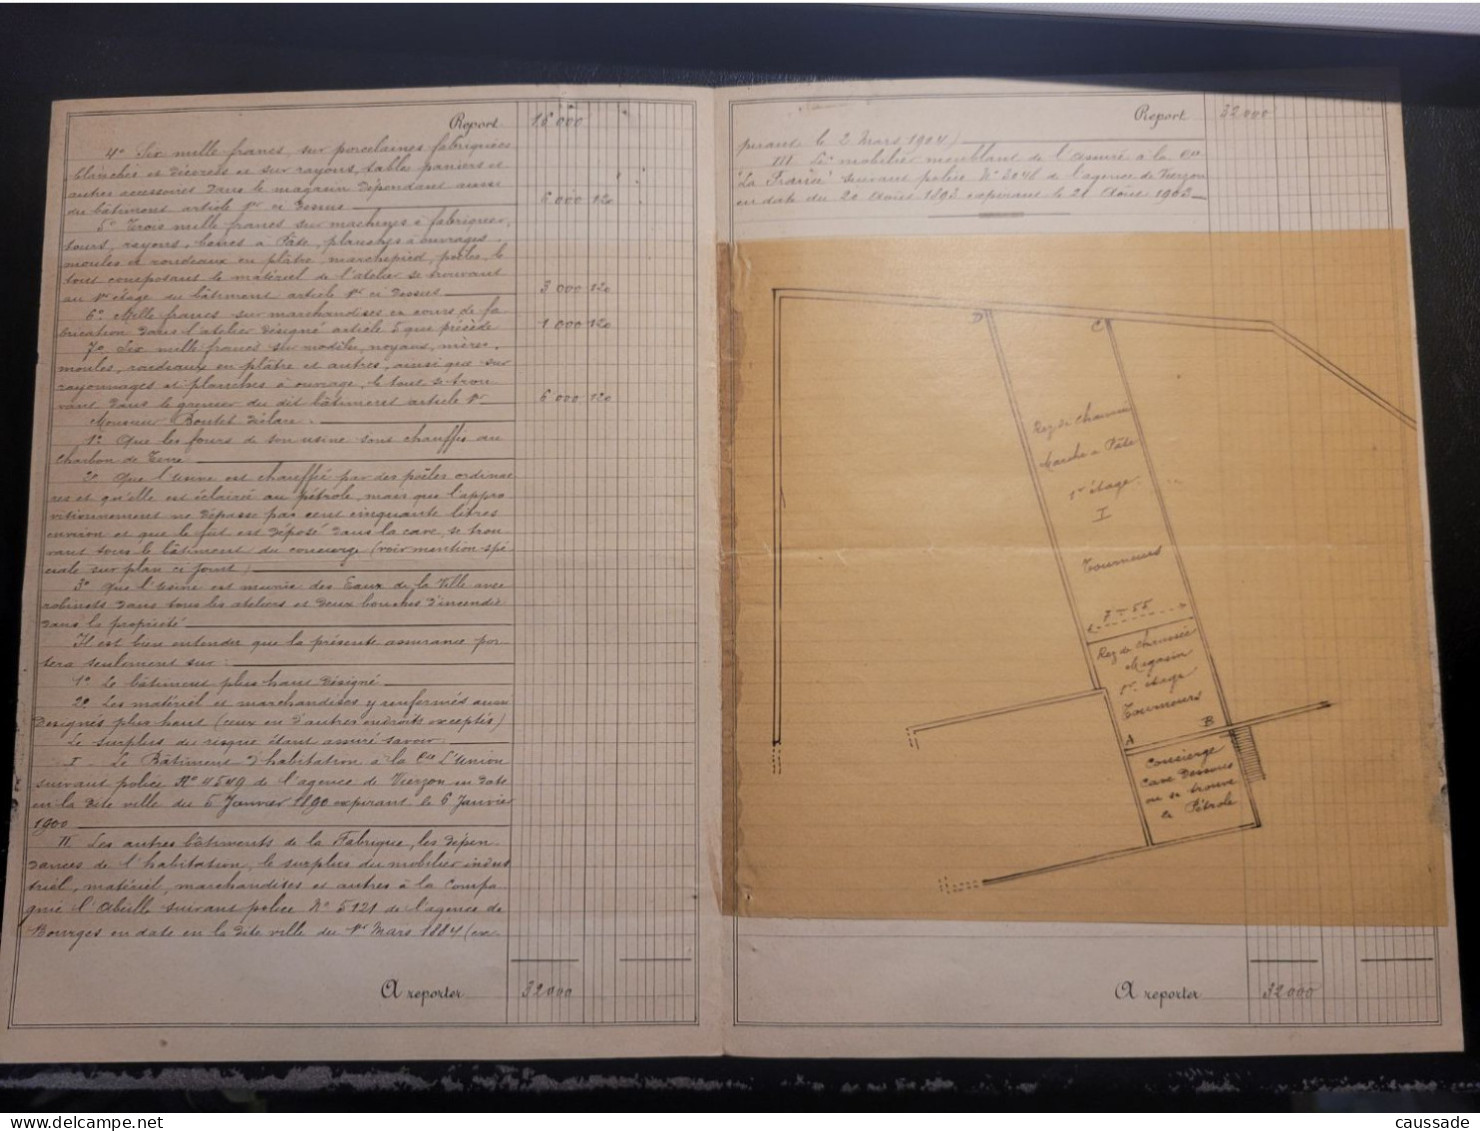 Report 16 000
4° Six mille francs, sur porcelaines fabriquées
blanches et décorées et sur rayons, tables paniers et
autres accessoires dans le magasin dépendant aussi
du bâtiment article 1er ci dessus 6 000 1 20
5° Trois mille francs sur machines à fabriquer,
tours, rayons, boites à Pâte, planches à ouvrages,
moules et rondeaux en plâtre, marchepied, poêles, le
tout composant le matériel de l'atelier se trouvant
au 1er étage du bâtiment article 1er ci dessus 3 000 1 20
6° Mille francs sur marchandises en cours de fa-
brication dans l'atelier désigné article 5 que précède 1 000 1 20
7° Six mille francs sur modèles, noyaux, mères,
moules, rondeaux en plâtre et autres, ainsi que sur
rayonnages et planches à ouvrage, le tout se trou-
vant dans le grenier du dit bâtiment article 1er 6 000 1 20
Monsieur Boutet déclare:
1° Que les fours de son usine sont chauffés au
charbon de terre
2° Que l'Usine est chauffée par des poêles ordinai
res et qu'elle est éclairée au pétrole, mais que l'appro
visionnement ne dépasse pas cent cinquante litres
environ et que le fût est déposé dans la cave, se trou
vant sous le bâtiment du concierge (voir mention spé
ciale sur plan ci joint)
3° Que l'Usine est munie des Eaux de la Ville avec
robinets dans tous les ateliers et deux bouches d'incendie
dans la propriété
Il est bien entendu que la présente assurance por-
tera seulement sur:
1° Le bâtiment plus haut désigné
2° Les matériel et marchandises y renfermés aussi
désignés plus haut (ceux en d'autres endroits exceptés)
Le surplus du risque étant assuré savoir:
I - Le Bâtiment d'habitation à la Cie L'Union
suivant police No 4549 de l'agence de Vierzon en date
en la dite ville du 5 Janvier 1890 expirant le 6 Janvier
1900
II Les autres bâtiments de la Fabrique, les dépen-
dances de l'habitation, le surplus du mobilier indus
triel, matériel, marchandises et autres à la Compa-
gnie l'Abeille suivant police No 5121 de l'agence de
Bourges en date en la dite ville du 1er Mars 1884 (ex-
A reporter 32 000
Report 32 000
pirant le 2 Mars 1904)
III Le mobilier meublant de l'assuré à la Cie
"La France" suivant police No 3046 de l'agence de Vierzon
en date du 20 Août 1893 expirant le 21 Août 1903
D
C
Rez de chaussée
Marche à Pâte
1er étage
I
Tourneurs
7m 55
Rez de chaussée
Magasin
1er étage
Tourneurs
A
B
Concierge
Cave dessous
où se trouve
le Pétrole
A reporter 32 000
caussade